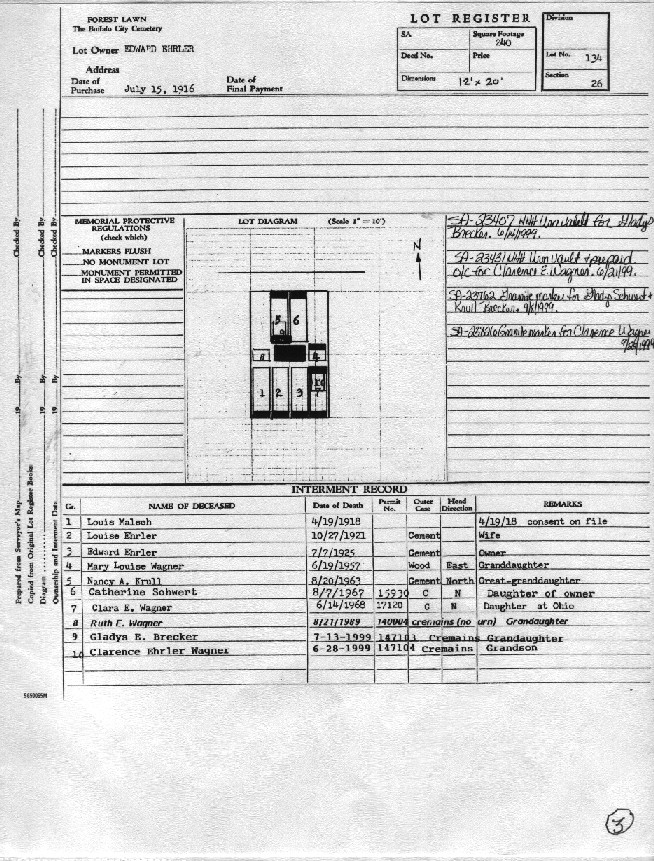 FOREST LAWN
The Buffalo City Cemetery
Lot Owner EDWARD EHRLER
Address
Date of Purchase July 15, 1916 Date of Final Payment
LOT REGISTER
SA Square Footage 240
Deed No. Price
Dimensions 12' x 20'
Division
Lot No. 134
Section 26
MEMORIAL PROTECTIVE
REGULATIONS
(check which)
MARKERS FLUSH
NO MONUMENT LOT
MONUMENT PERMITTED
IN SPACE DESIGNATED
LOT DIAGRAM (Scale 1" = 10')
N
5 6
9
8 4
1 2 3 10
7
SA-23407 Urn Vault for Gladys
Brecker. 6/21/1999.
SA-23431 Urn Vault & prepaid
o/c for Clarence E. Wagner. 6/21/99.
Granite marker for Gladys Schwert &
Krull Brecker.
Granite marker for Clarence Wagner
Prepared from Surveyor's Map 19 By Checked By
Copied from Original Lot Register Books
Diagram 19 By Checked By
Ownership and Interment Data 19 By Checked By
INTERMENT RECORD
Gr. NAME OF DECEASED Date of Death Permit No. Outer Case Head Direction REMARKS
1 Louis Malsch 4/19/1918 4/19/18 consent on file
2 Louise Ehrler 10/27/1921 Cement Wife
3 Edward Ehrler 7/7/1925 Cement Owner
4 Mary Louise Wagner 6/19/1957 Wood East Granddaughter
5 Nancy A. Krull 8/20/1963 Cement North Great-granddaughter
6 Catherine Schwert 8/7/1967 15930 C N Daughter of owner
7 Clara E. Wagner 6/14/1968 17120 C N Daughter at Ohio
8 Ruth E. Wagner 8/21/1989 140004 cremains (no urn) Grandaughter
9 Gladys E. Brecker 7-13-1999 147103 Cremains Grandaughter
10 Clarence Ehrler Wagner 6-28-1999 147104 Cremains Grandson
3